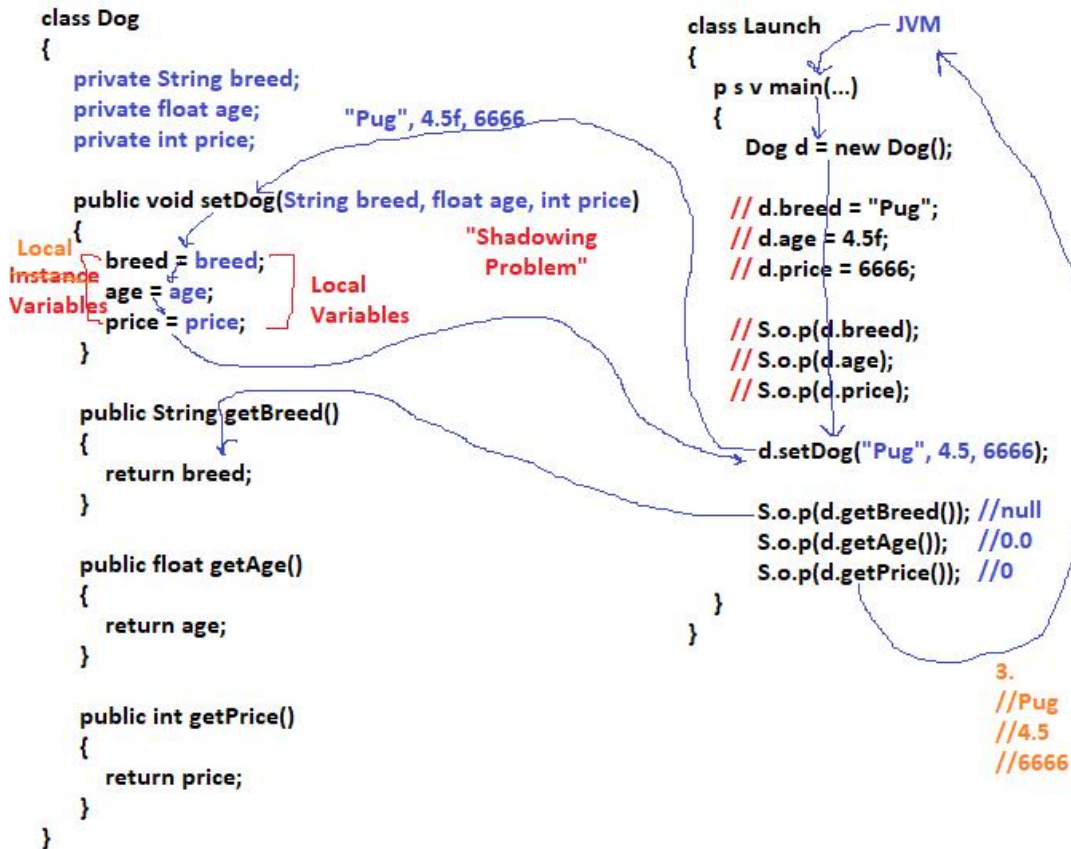 class Dog
{
private String breed;
private float age;
private int price;
"Pug", 4.5f, 6666
public void setDog(String breed, float age, int price)
{
Local
Instance
Variables
breed = breed;
age = age;
price = price;
Local
Variables
"Shadowing
Problem"
}
public String getBreed()
{
return breed;
}
public float getAge()
{
return age;
}
public int getPrice()
{
return price;
}
}
class Launch
JVM
{
p s v main(...)
{
Dog d = new Dog();
// d.breed = "Pug";
// d.age = 4.5f;
// d.price = 6666;
// S.o.p(d.breed);
// S.o.p(d.age);
// S.o.p(d.price);
d.setDog("Pug", 4.5, 6666);
S.o.p(d.getBreed()); //null
S.o.p(d.getAge()); //0.0
S.o.p(d.getPrice()); //0
}
}
3.
//Pug
//4.5
//6666